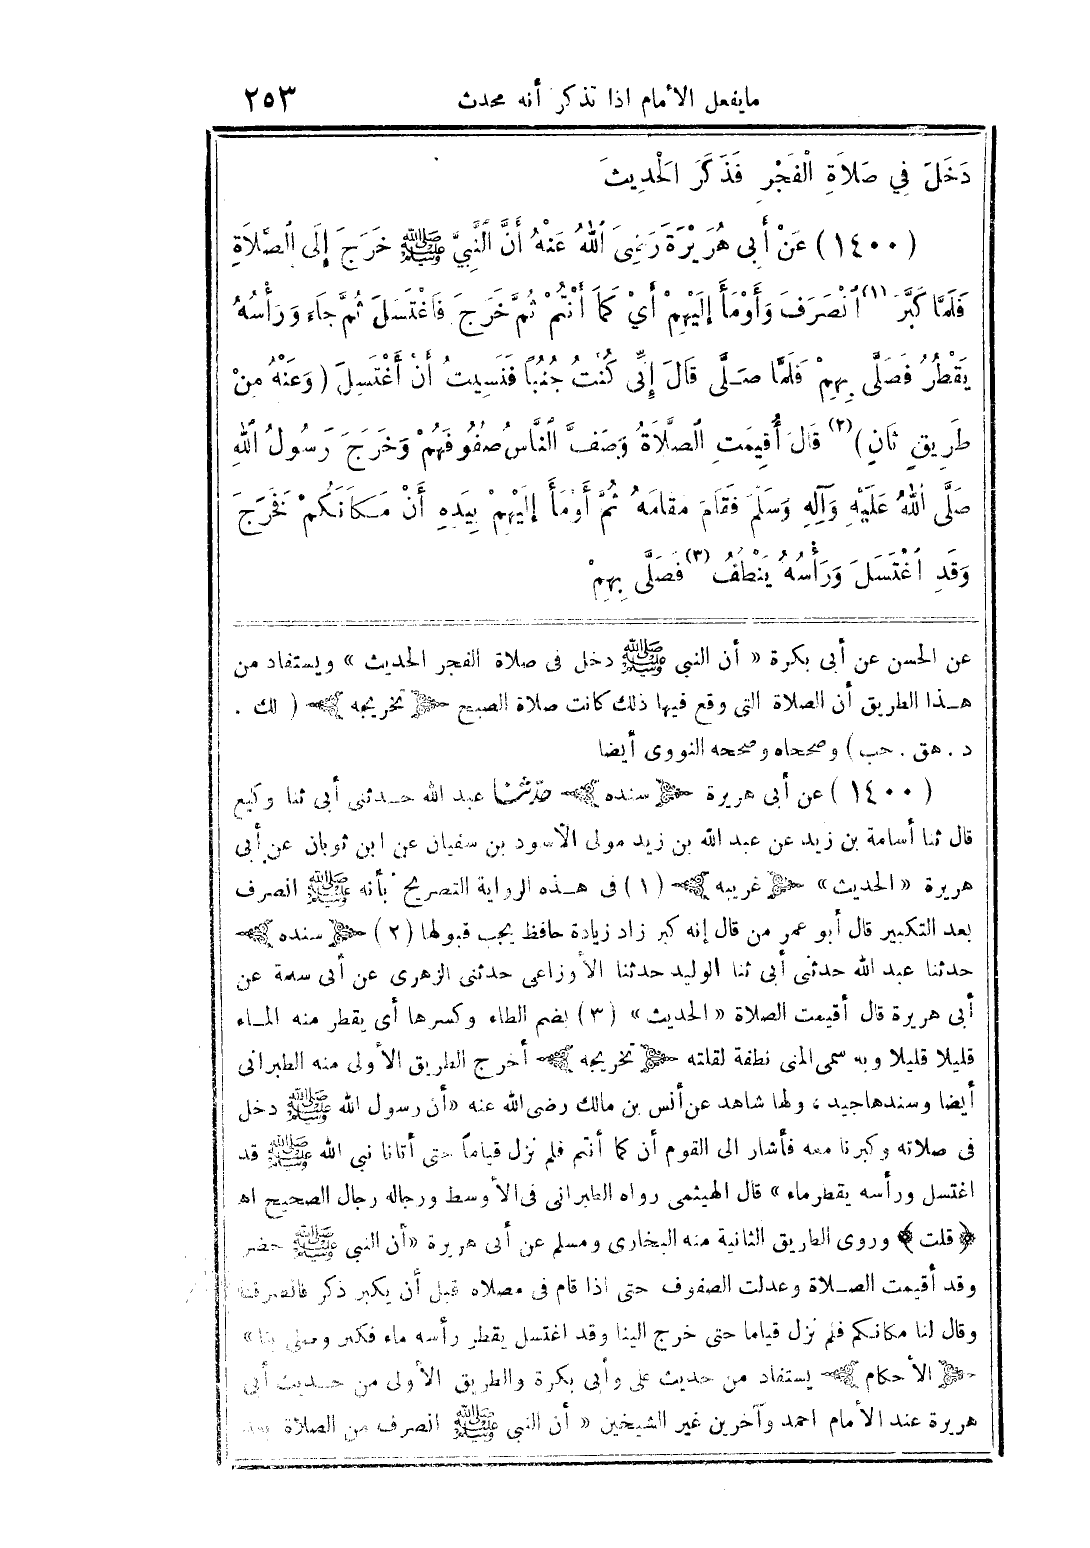 مايفعل الأمام اذا تذكر أنه محدث ٢٥٣
دَخَلَ فِي صَلاَةِ الْفَجْرِ فَذَكَرَ الْحَدِيثَ
(١٤٠٠) عَنْ أَبِى هُرَيْرَةَ رَضِىَ اللهُ عَنْهُ أَنَّ النَّبِيَّ ﷺ خَرَجَ إِلَى الصَّلَاةِ
فَلَمَّا كَبَّرَ (١) انْصَرَفَ وَأَوْمَأَ إِلَيْهِمْ أَيْ كَمَا أَنْتُمْ ثُمَّ خَرَجَ فَاغْتَسَلَ ثُمَّ جَاءَ وَرَأْسُهُ
يَقْطُرُ فَصَلَّى بِهِمْ فَلَمَّا صَلَّى قَالَ إِنِّى كُنْتُ جُنُبًا فَنَسِيتُ أَنْ أَغْتَسِلَ (وَعَنْهُ مِنْ
طَرِيقٍ ثَانٍ) (٢) قَالَ أُقِيمَتِ الصَّلَاةُ وَصَفَّ النَّاسُ صُفُوفَهُمْ وَخَرَجَ رَسُولُ اللهِ
صَلَّى اللهُ عَلَيْهِ وَآلِهِ وَسَلَّمَ فَقَامَ مَقَامَهُ ثُمَّ أَوْمَأَ إِلَيْهِمْ بِيَدِهِ أَنْ مَكَانَكُمْ فَخَرَجَ
وَقَدِ اغْتَسَلَ وَرَأْسُهُ يَنْطُفُ (٣) فَصَلَّى بِهِمْ
عن الحسن عن أبى بكرة « أن النبي ﷺ دخل فى صلاة الفجر الحديث » ويستفاد من
هـذا الطريق أن الصلاة التى وقع فيها ذلك كانت صلاة الصبح ﴿ تخريجه ﴾ (لك .
د . هق . حب) وصححاه وصححه النووى أيضا
(١٤٠٠) عن أبى هريرة ﴿ سنده ﴾ حدثنا عبد الله حـدثنى أبى ثنا وكيع
قال ثنا أسامة بن زيد عن عبد الله بن زيد مولى الأسود بن سفيان عن ابن ثوبان عن أبى
هريرة «الحديث» ﴿ غريبه ﴾ (١) فى هـذه الرواية التصريح بأنه ﷺ انصرف
بعد التكبير قال أبو عمر من قال إنه كبر زاد زيادة حافظ يجب قبولها (٢) ﴿ سنده ﴾
حدثنا عبد الله حدثنى أبى ثنا الوليد حدثنا الأوزاعى حدثنى الزهرى عن أبى سلمة عن
أبى هريرة قال أقيمت الصلاة «الحديث» (٣) بضم الطاء وكسرها أى يقطر منه المـاء
قليلا قليلا وبه سمى المنى نطفة لقلته ﴿ تخريجه ﴾ أخرج الطريق الأولى منه الطبرانى
أيضا وسندها جيد ، ولها شاهد عن أنس بن مالك رضى الله عنه «أن رسول الله ﷺ دخل
فى صلاته وكبرنا معه فأشار الى القوم أن كما أنتم فلم نزل قياماً حتى أتانا نبي الله ﷺ قد
اغتسل ورأسه يقطر ماء » قال الهيثمى رواه الطبرانى فى الأوسط ورجاله رجال الصحيح اه
﴿ قلت ﴾ وروى الطريق الثانية منه البخارى ومسلم عن أبى هريرة «أن النبى ﷺ حضر
وقد أقيمت الصـلاة وعدلت الصفوف حتى اذا قام فى مصلاه قبل أن يكبر ذكر فانصرف
وقال لنا مكانكم فلم نزل قياما حتى خرج الينا وقد اغتسل يقطر رأسه ماء فكبر وصلى بنا»
﴿ الأحكام ﴾ يستفاد من حديث على وأبى بكرة والطريق الأولى من حـديث أبى
هريرة عند الأمام احمد وآخرين غير الشيخين « أن النبى ﷺ انصرف من الصلاة بعد